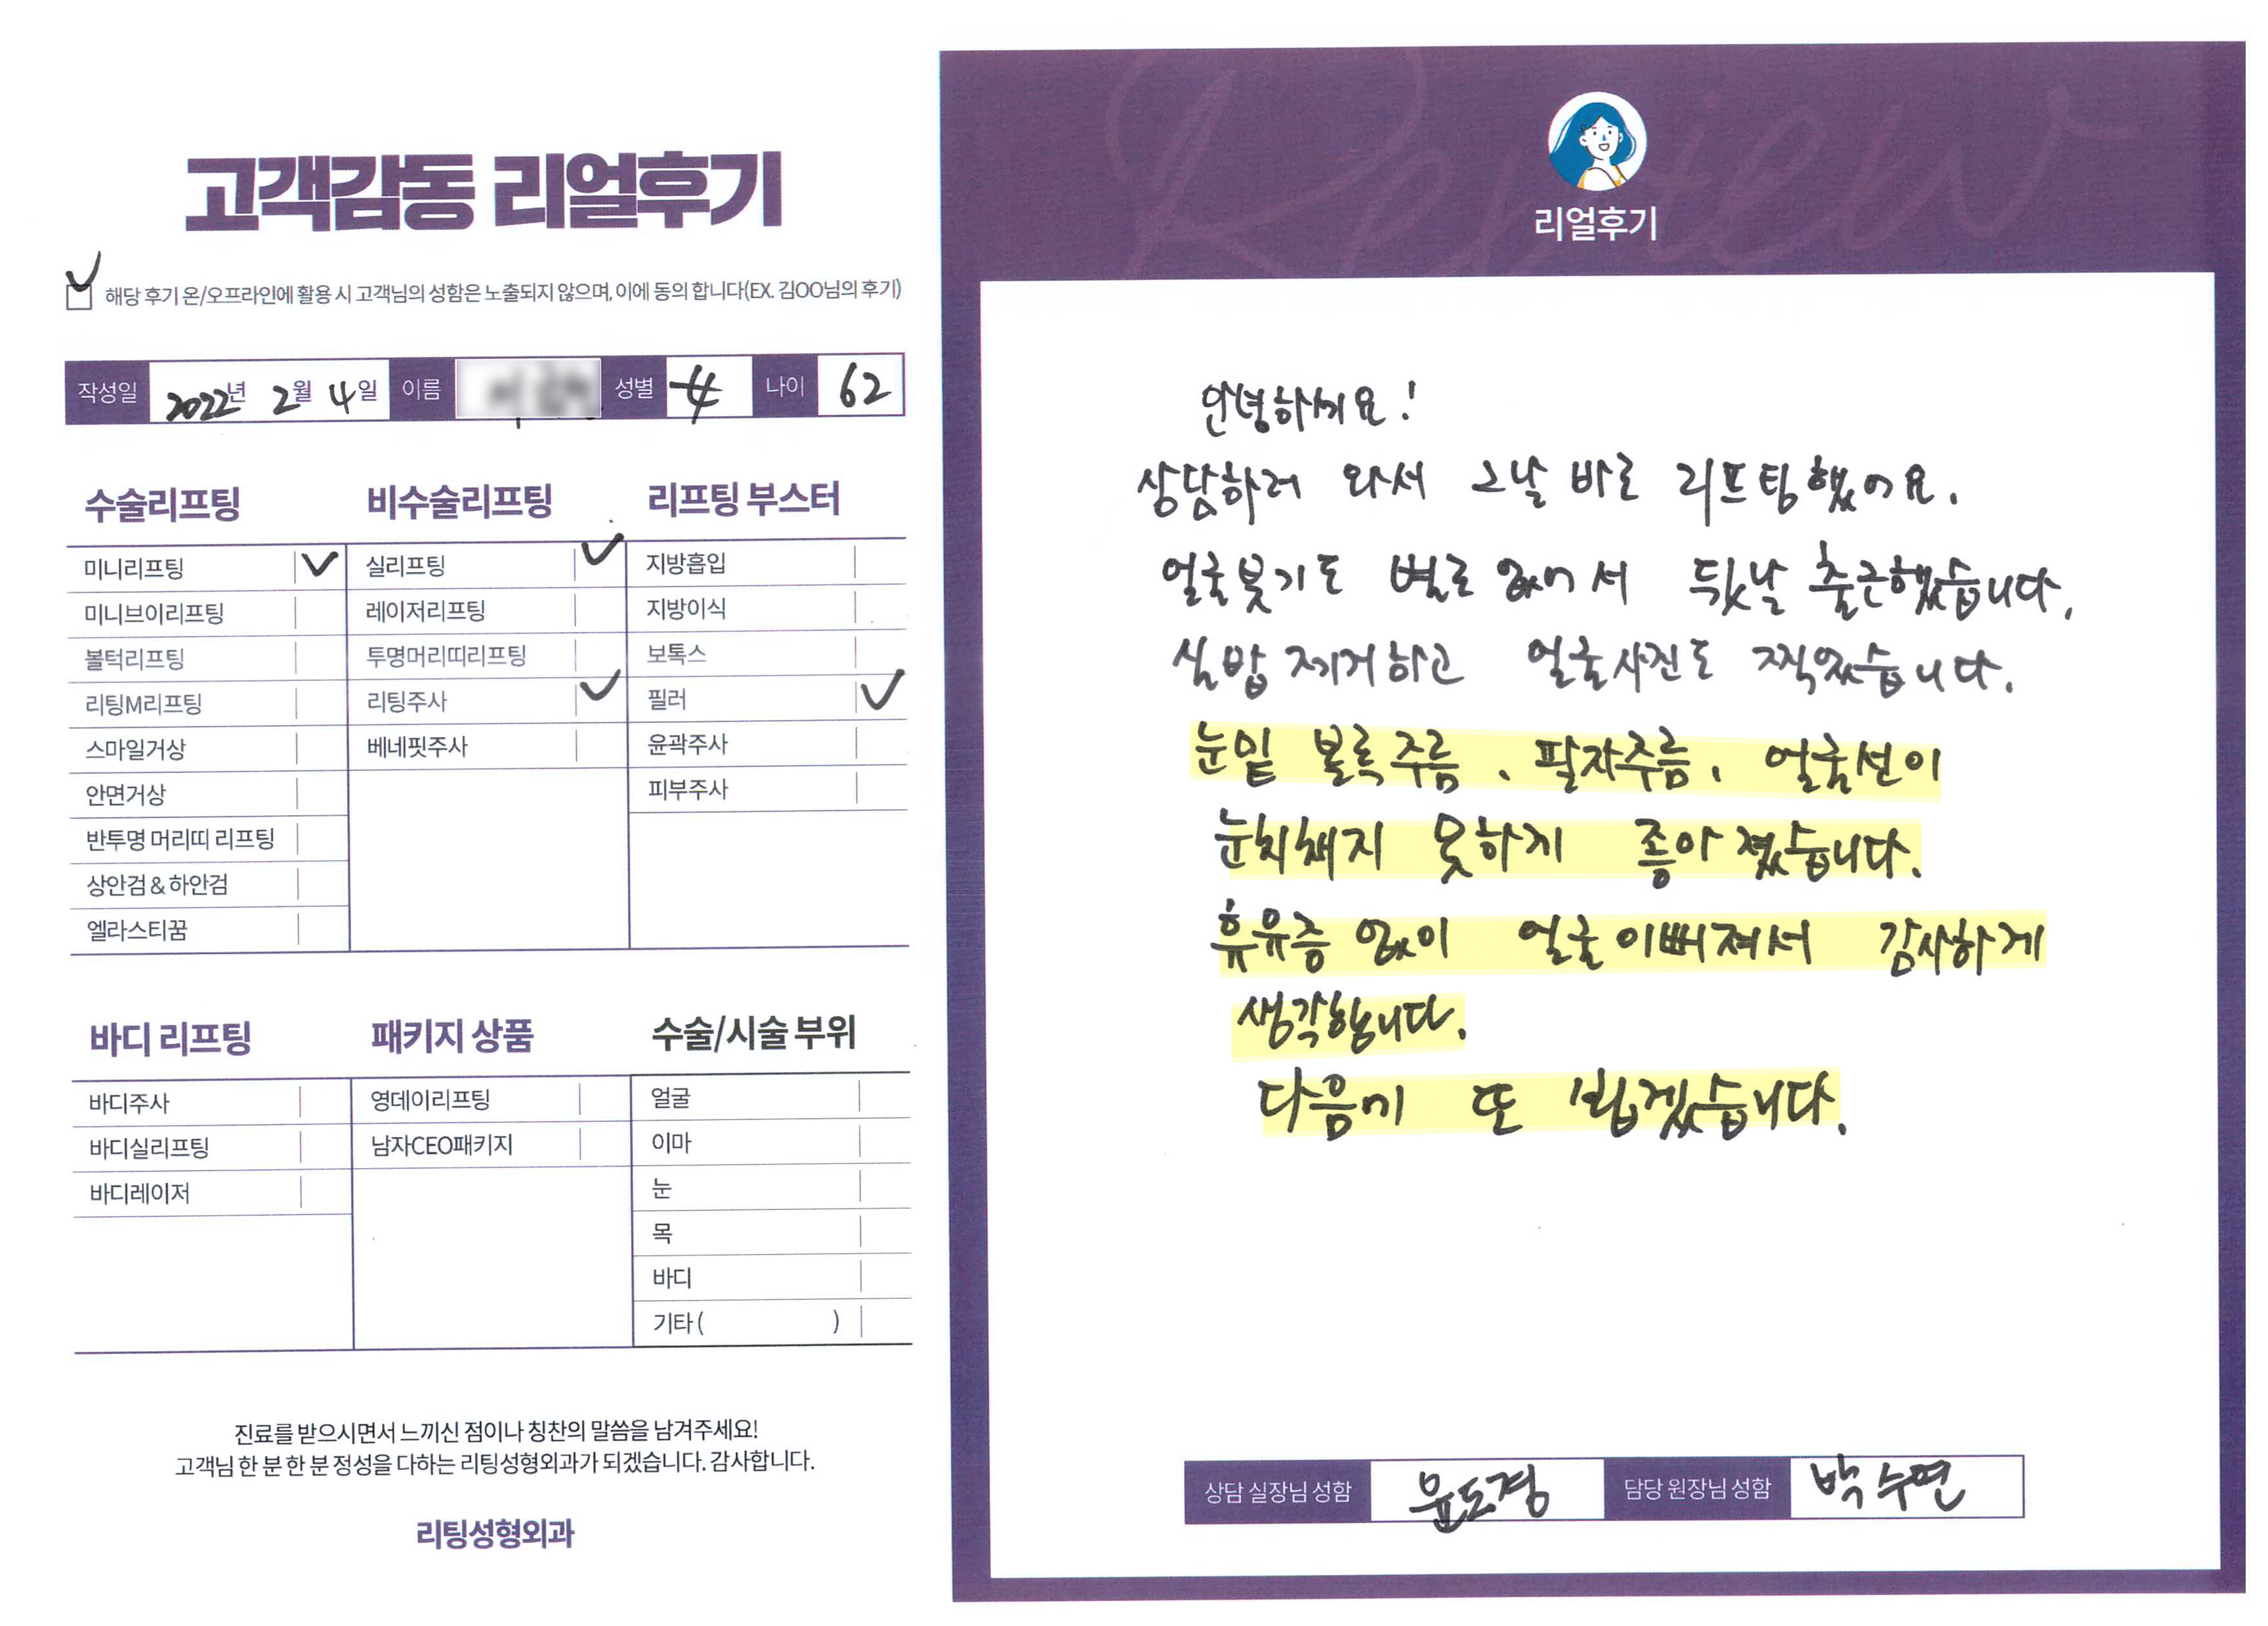 고객감동 리얼후기
해당 후기 온/오프라인에 활용 시 고객님의 성함은 노출되지 않으며, 이에 동의 합니다(EX. 김OO님의 후기)
작성일 2022년 2월 4일 이름 성별 女 나이 62
수술리프팅
미니리프팅
미니브이리프팅
볼턱리프팅
리팅M리프팅
스마일거상
안면거상
반투명 머리띠 리프팅
상안검 & 하안검
엘라스티꿈
비수술리프팅
실리프팅
레이저리프팅
투명머리띠리프팅
리팅주사
베네핏주사
리프팅 부스터
지방흡입
지방이식
보톡스
필러
윤곽주사
피부주사
바디 리프팅
바디주사
바디실리프팅
바디레이저
패키지 상품
영데이리프팅
남자CEO패키지
수술/시술 부위
얼굴
이마
눈
목
바디
기타 ( )
진료를 받으시면서 느끼신 점이나 칭찬의 말씀을 남겨주세요!
고객님 한 분 한 분 정성을 다하는 리팅성형외과가 되겠습니다. 감사합니다.
리팅성형외과
Review
리얼후기
안녕하세요!
상담하러 와서 그날 바로 리프팅했어요.
얼굴붓기도 별로 없어서 뒷날 출근했습니다.
실밥 제거하고 얼굴사진도 찍었습니다.
눈밑 볼록주름, 팔자주름, 얼굴선이
눈치채지 못하게 좋아졌습니다.
휴유증 없이 얼굴이뻐져서 감사하게
생각합니다.
다음에 또 뵙겠습니다.
상담 실장님 성함 윤도경 담당 원장님 성함 박수연